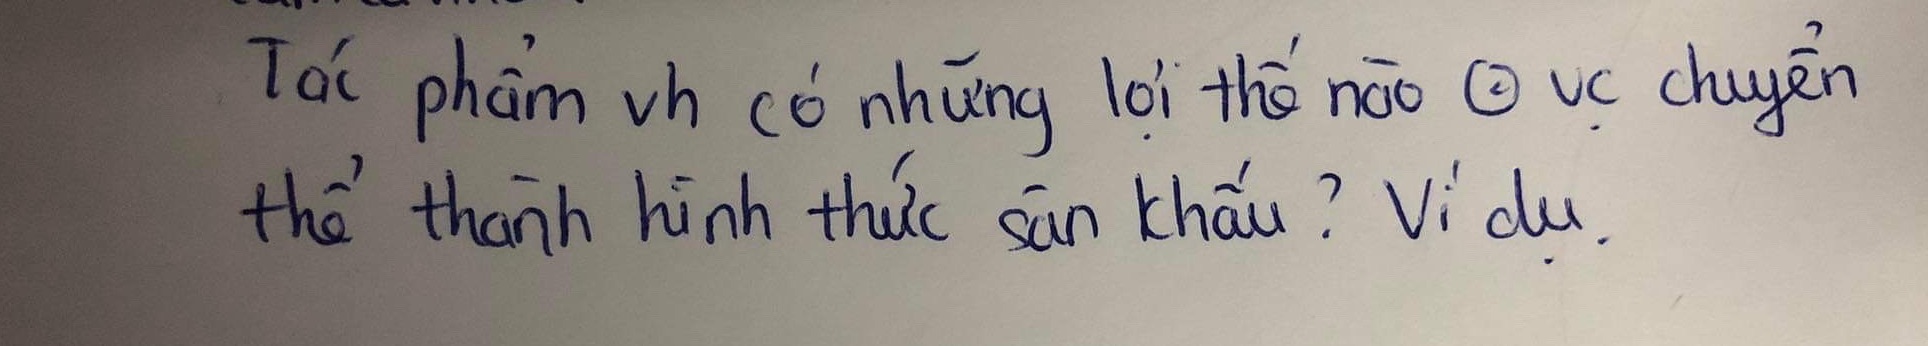 Tác phẩm vh có những lợi thế nào ⊙ vc chuyển
thể thành hình thức sân khấu? Ví dụ.